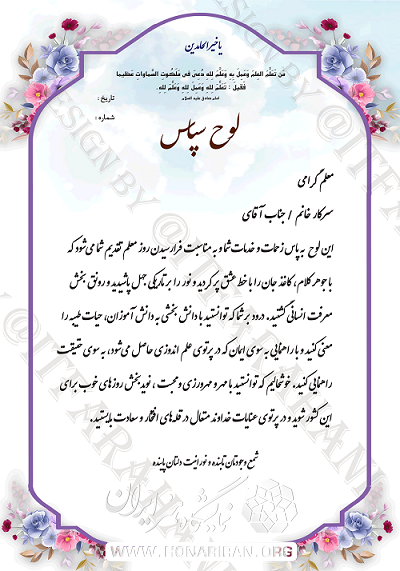 یا خیرالحامدین
مَن تَعَلَّمَ العِلمَ وَعَمِلَ بِهِ وَعَلَّمَ لِلهِ دُعِیَ فی مَلَکُوتِ السَّماواتِ عَظیما
فَقیلَ : تَعَلَّمَ لِلهِ وَعَمِلَ لِلهِ وَعَلَّمَ لِلهِ.
امام صادق علیه السلام
تاریخ :
شماره :
لوح سپاس
معلم گرامی
سرکار خانم / جناب آقای
این لوح به پاس زحمات و خدمات شما و به مناسبت فرارسیدن روز معلم تقدیم شما می‌شود که
با جوهر کلام، کاغذ جان را با خط عشق پر کردید و نور را بر تاریکی جهل پاشیدید و رونق بخش
معرفت انسانی گشتید. درود بر شما که توانستید با دانش بخشی به دانش آموزان، حیات طیبه را
معنی کنید و با راهنمایی به سوی ایمان که در پرتوی علم اندوزی حاصل می‌شود، به سوی حقیقت
راهنمایی کنید. خوشحالیم که توانستید با مهر و مهرورزی و محبت، نوید بخش روزهای خوب برای
این کشور شوید و در پرتوی عنایات خداوند متعال در قله‌های افتخار و سعادت بایستید.
شمع وجودتان تابنده و نورانیت دلتان پاینده
نمایشگاه هنر ایران
WWW.HONARIRAN.ORG
DESIGN BY @ITFARAHANI